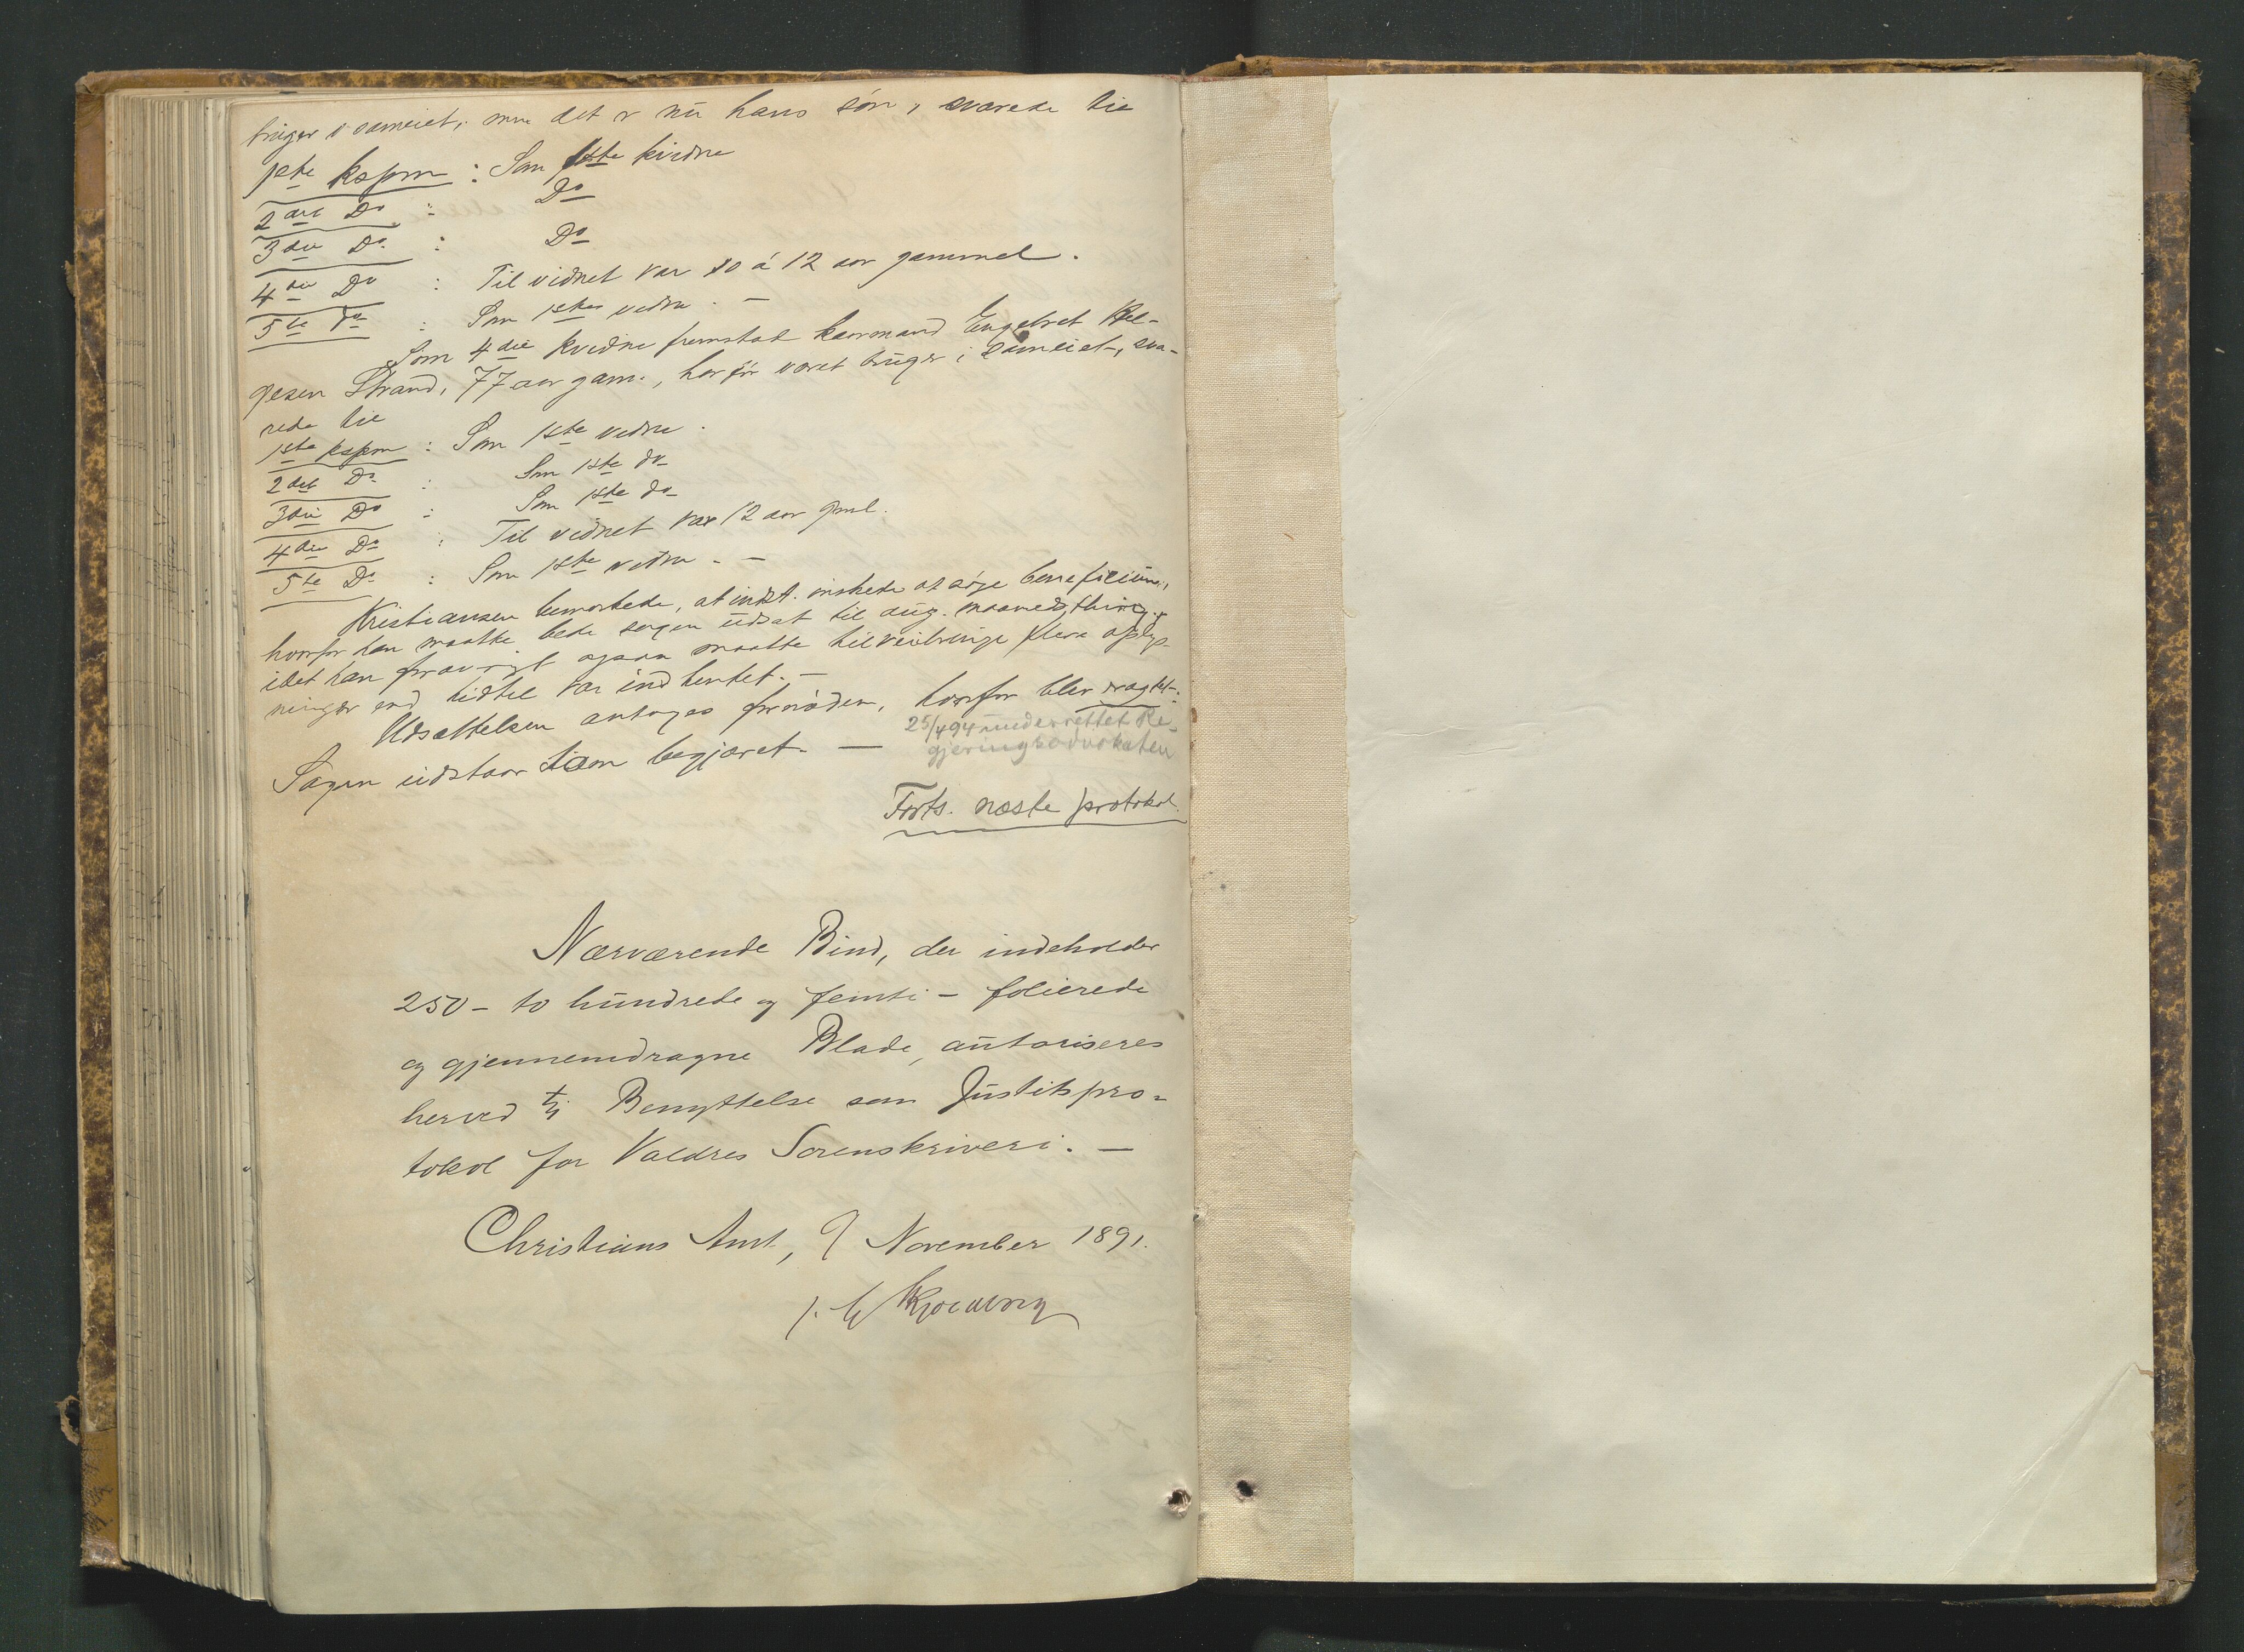 bruger i sameiet, men det er nu hans søn, svarede til
1ste kspm : Som 1ste kvidne
2det Do : Do
3die Do : Do
4de Do : Til vidnet var 10 à 12 aar gammel.
5te Do : Som 1ste vidne. —
Som 4die kvidne fremstod kaarmand Engebret Hel-
gesen Strand, 77 aar gam., har før været bruger i sameiet, sva-
rede til
1ste kspm : Som 1ste vidne.
2det Do : Som 1ste do
3die Do : Som 1ste do
4die Do : Til vidnet var 12 aar gml.
5te Do : Som 1ste vidne. —
Kristiansen bemærkede, at indst. ønskede at søge beneficium,
hvorfor han maatte bede sagen udsat til aug. maanedsthing,
idet han forøvrigt ogsaa maatte tilveiebringe flere oplys-
ninger end hidtil var indhentet. —
Udsættelsen antoges fornøden, hvorfor blev eragtet.
Sagen udstaar som begjæret. —
25/4 94 underrettet Re-
gjeringsadvokaten
Forts. næste protokol.
Nærværende Bind, der indeholder
250 – to hundrede og femti – folierede
og gjennemdragne Blade, autoriseres
herved til Benyttelse som Justitspro-
tokol for Valdres Sorenskriveri. —
Christians Amt, 9 November 1891.